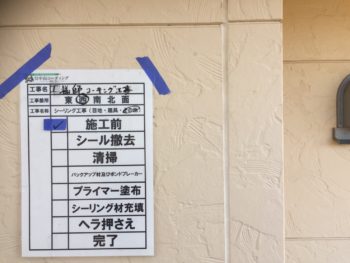 工事名 コーキング工事
工事箇所 東西南北面
工事名称 シーリング工事（目地・建具・
✓ 施工前
シール撤去
清掃
バックアップ材及びボンドブレーカー
プライマー塗布
シーリング材充填
ヘラ押さえ
完了